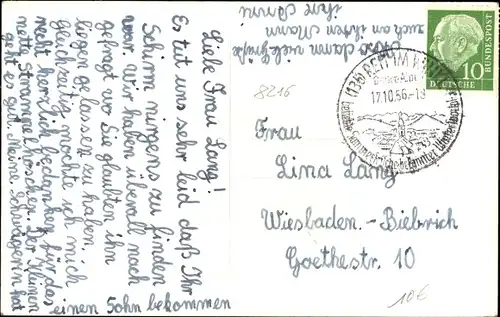 Liebe Frau Lang!
Es tut uns sehr leid daß Ihr
Schirm nirgens zu finden
war, wir haben überall nach
gefragt wo Sie glaubten ihn
liegen gelassen zu haben.
Gleichzeitig möchte ich mich
recht herzlich bedanken für das
nette Strampelhöschen. Der Kleinen
geht es gut. Meine Schwägerin hat
einen Sohn bekommen
Also dann viele Grüße
auch an ihren Mann
ihre
8216
17.10.56.-1
DEUTSCHE
BUNDESPOST
10
Frau
Lina Lang
Wiesbaden.-Biebrich
Goethestr. 10
10€